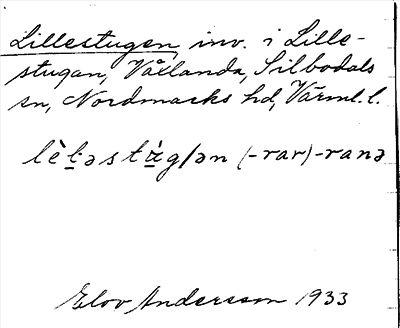 Lillestugen, inv. i Lille-
stugan, Vällanda, Silbodals
sn, Nordmarks hd, Värml. l.
lèḷəstùg/ən (-rar)-ranə
Elov Andersson 1933